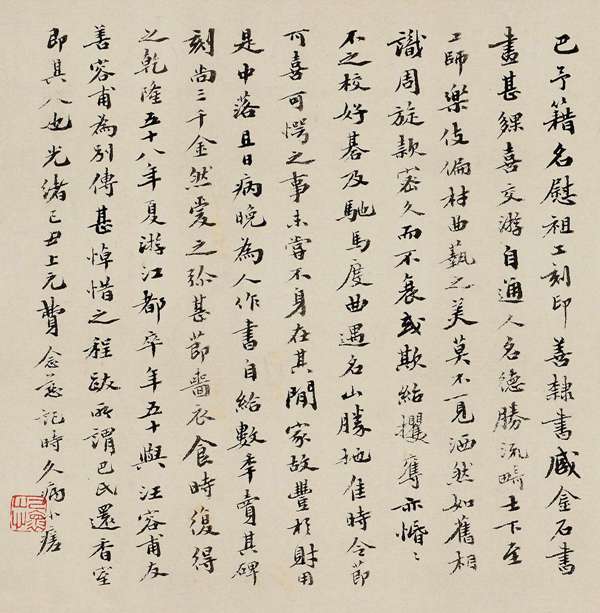 巴予籍名慰祖工刻印善隸書藏金石書
畫甚夥喜交游自通人名德勝流畸士下至
工師樂伎偏材曲藝之美莫不一見洒然如舊相
識周旋款密久而不衰或欺紿攫奪亦惛〻
不之校好碁及馳馬度曲遇名山勝地佳時令節
可喜可愕之事未嘗不身在其閒家故豐於財用
是中落且日病晚為人作書自給數年賣其碑
刻尚三千金然愛之弥甚節嗇衣食時復得
之乾隆五十八年夏游江都卒年五十與汪容甫友
善容甫為別傳甚悼惜之程跋所謂巴氏還香室
即其人也光緒己丑上元費念慈記時久病小瘥